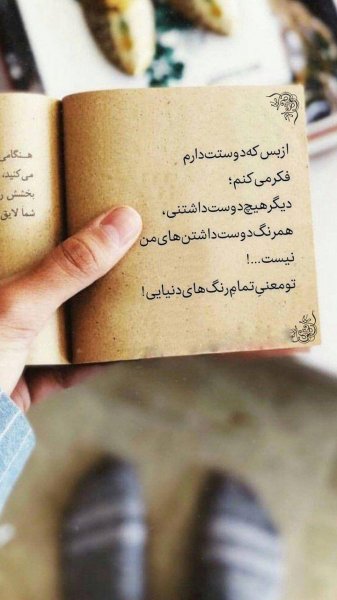 از بس که دوستت دارم
فکر می کنم؛
دیگر هیچ دوست داشتنی،
همرنگ دوست داشتن های من
نیست...!
تو معنیِ تمامِ رنگ های دنیایی!
هنگامی
می کنید،
بخشش
شما لایق